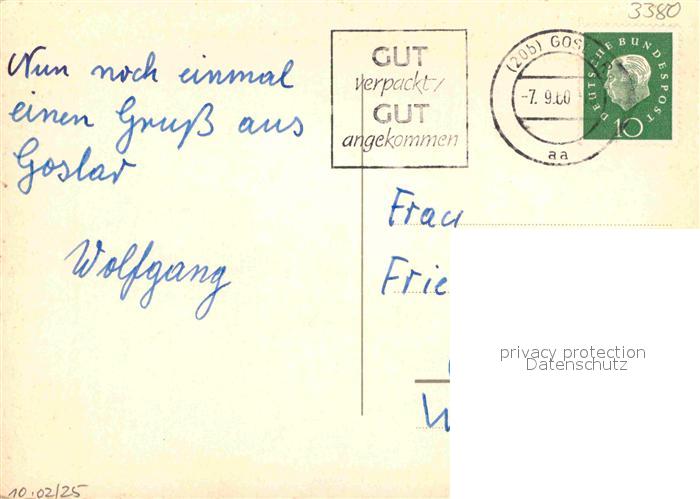 3380
Nun noch einmal
einen Gruß aus
Goslar
Wolfgang
GUT
verpackt/
GUT
angekommen
(20b) GOSLAR
-7. 9.60
aa
DEUTSCHE BUNDESPOST
10
Frau
Frie
privacy protection
Datenschutz
10.02/25